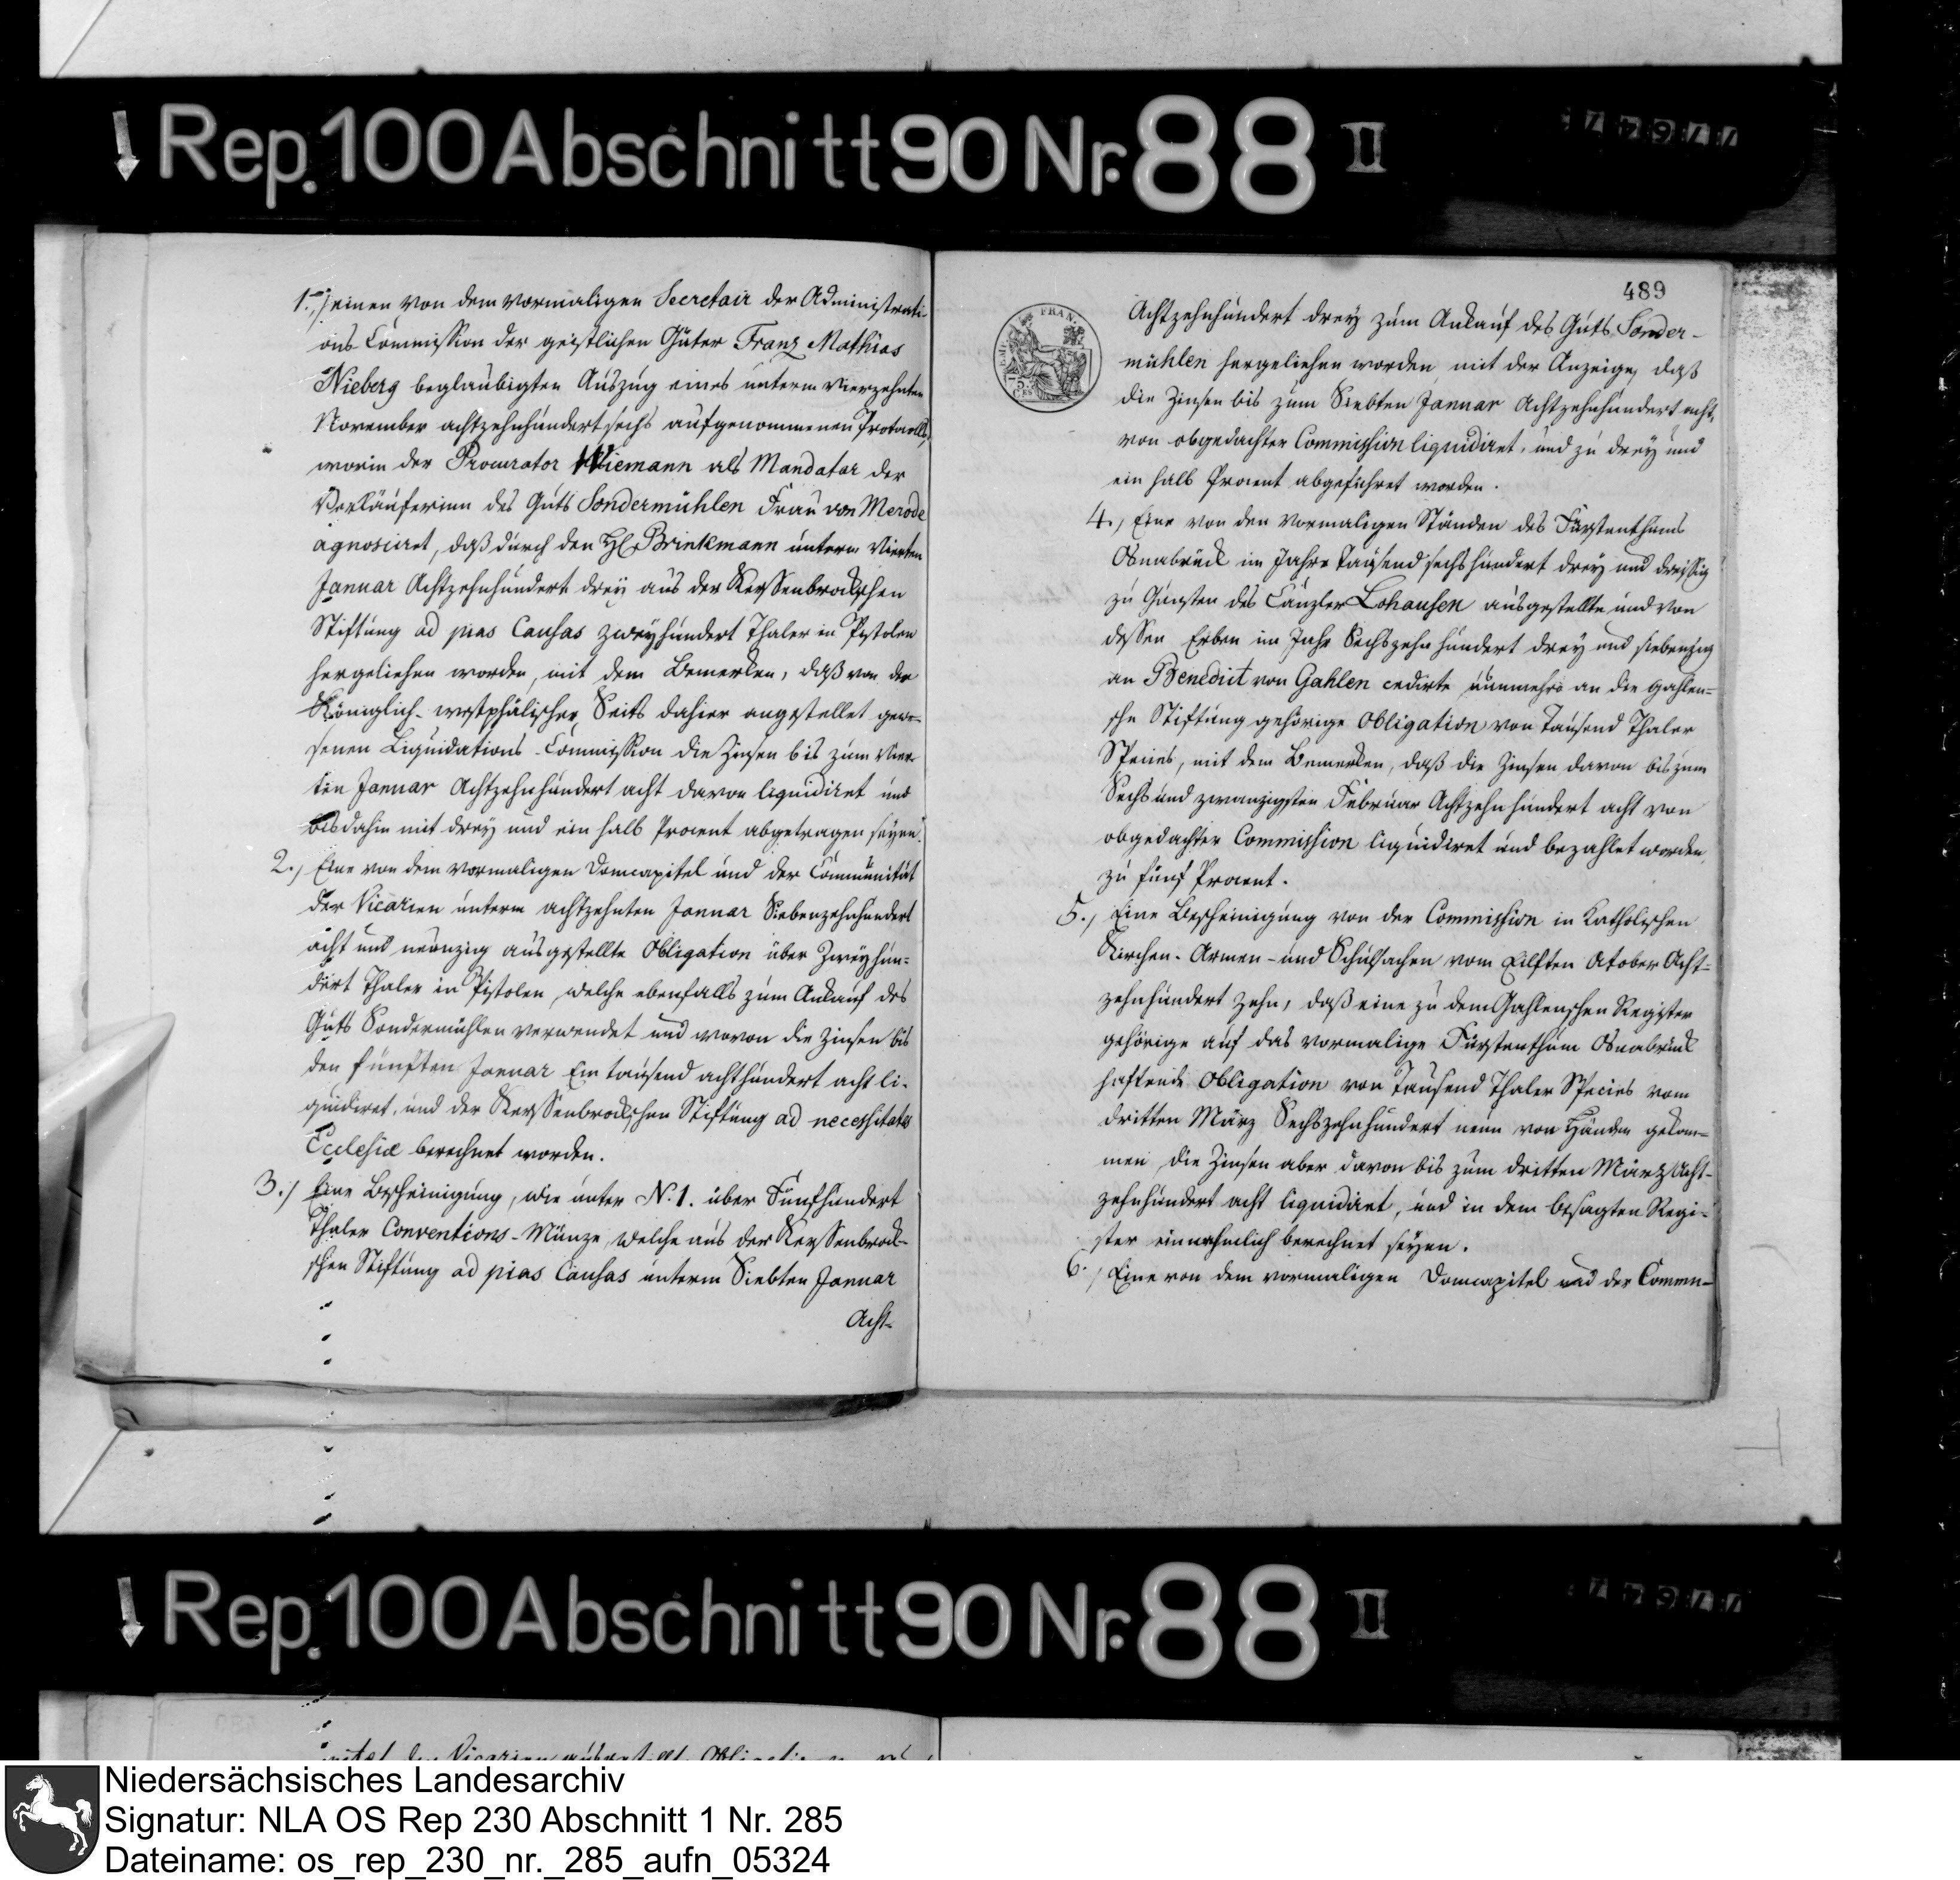 Rep. 100 Abschnitt 90 Nr. 88 II
1.) einen von dem vormaligen Secretair der Administrati-
ons Commission der geistlichen Güter Franz Mathias
Nieberg beglaubigten Auszug eines unterm vierzehnten
November achtzehnhundert sechs aufgenommenen Protocolls,
worin der Procurator Wiemann als Mandatar der
Verkäuferinn des Guts Sondermühlen Frau von Merode
agnosciret, daß durch den H. Brinkmann unterm vierten
Januar Achtzehnhundert drey aus der Kerssenbrockschen
Stiftung ad pias Causas zweyhundert Thaler in Pistolen
hergeliehen worden, mit dem Bemerken, daß von der
Königlich-westphälischer Seits dahier angestellet gewe-
senen Liquidations-Commission die Zinsen bis zum vier-
ten Januar Achtzehnhundert acht davon liquidiret und
bis dahin mit drey und ein halb Procent abgetragen seyen.
2.) Eine von dem vormaligen Domcapitel und der Communität
der Vicarien unterm achtzehnten Januar Siebenzehnhundert
acht und neunzig ausgestellte Obligation über Zweyhun-
dert Thaler in Pistolen, welche ebenfalls zum Ankauf des
Guts Sondermühlen verwendet und wovon die Zinsen bis
den fünften Januar Ein tausend achthundert acht li-
quidiret, und der Kerssenbrockschen Stiftung ad necessitates
Ecclesiæ berechnet worden.
3.) Eine Bescheinigung, wie unter N. 1. über Fünfhundert
Thaler Conventions-Münze, welche aus der Kerssenbrock-
schen Stiftung ad pias Causas unterm Siebten Januar
Acht-
489
FRAN.
75.
CES
Achtzehnhundert drey zum Ankauf des Guts Sonder-
mühlen hergeliehen worden, mit der Anzeige, daß
die Zinsen bis zum Siebten Januar Achtzehnhundert acht,
von obgedachter Commission liquidiret, und zu drey und
ein halb Procent abgeführet worden.
4.) Eine von den vormaligen Ständen des Fürstenthums
Osnabrück im Jahre Tausend sechshundert drey und dreissig
zu Gunsten des Canzler Lohausen ausgestellte und von
dessen Erben im Jahr Sechszehn hundert drey und siebenzig
an Benedict von Gahlen cedirte nunmehro an die Gahlen-
sche Stiftung gehörige Obligation von Tausend Thaler
Species, mit dem Bemerken, daß die Zinsen davon bis zum
Sechs und zwanzigsten Februar Achtzehn hundert acht von
obgedachter Commission liquidiret und bezahlet worden,
zu fünf Procent.
5.) Eine Bescheinigung von der Commission in Katholischen
Kirchen- Armen- und Schulsachen vom Eilften October Acht-
zehnhundert zehn, daß eine zu dem Gahlenschen Register
gehörige auf das vormalige Fürstenthum Osnabrück
haftende Obligation von Tausend Thaler Species vom
dritten März Sechszehnhundert neun von Händen gekom-
men, die Zinsen aber davon bis zum dritten März Acht-
zehnhundert acht liquidiret, und in dem besagten Regi-
ster einnahmlich berechnet seyen.
6.) Eine von dem vormaligen Domcapitel und der Commu-
Rep. 100 Abschnitt 90 Nr. 88 II
Niedersächsisches Landesarchiv
Signatur: NLA OS Rep 230 Abschnitt 1 Nr. 285
Dateiname: os_rep_230_nr._285_aufn_05324